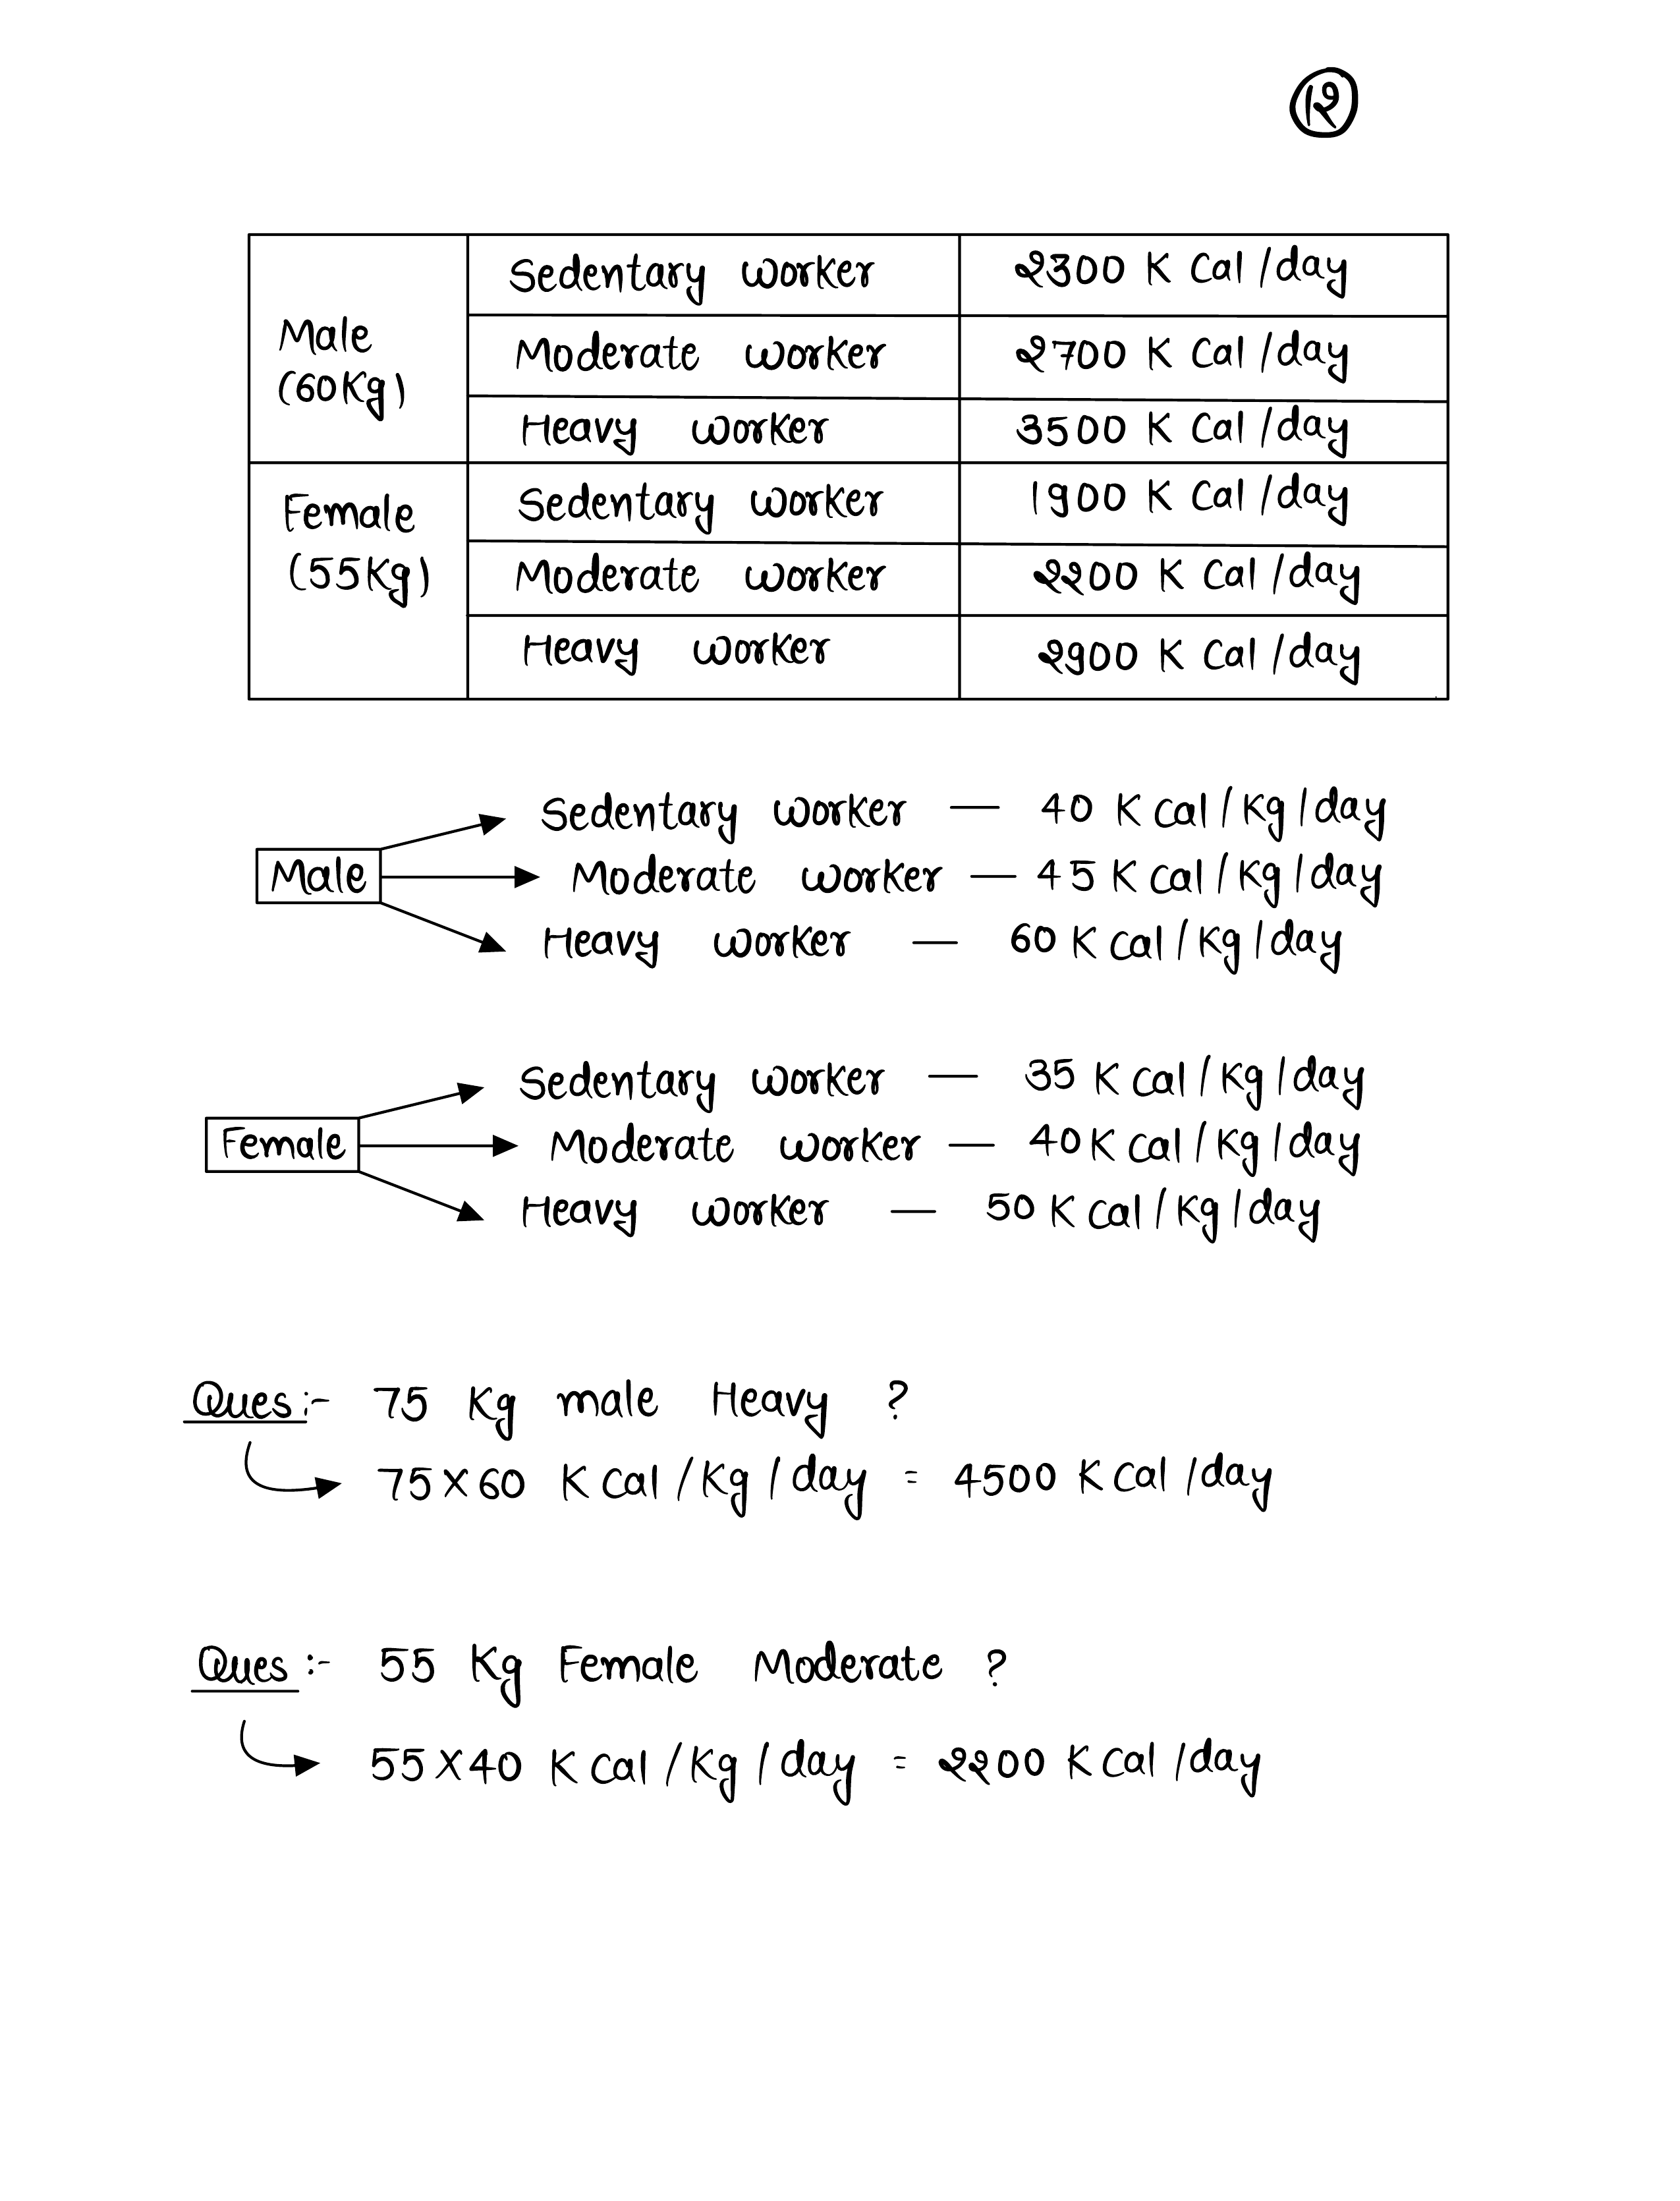 12
Male
(60Kg)
Sedentary worker 2300 K Cal/day
Moderate worker 2700 K Cal/day
Heavy worker 3500 K Cal/day
Female
(55Kg)
Sedentary worker 1900 K Cal/day
Moderate worker 2200 K Cal/day
Heavy worker 2900 K Cal/day
Male
Sedentary worker — 40 K Cal/Kg/day
Moderate worker — 45 K Cal/Kg/day
Heavy worker — 60 K Cal/Kg/day
Female
Sedentary worker — 35 K Cal/Kg/day
Moderate worker — 40 K Cal/Kg/day
Heavy worker — 50 K Cal/Kg/day
Ques:- 75 Kg male Heavy ?
75X60 K Cal/Kg/day = 4500 K Cal/day
Ques:- 55 Kg Female Moderate ?
55X40 K Cal/Kg/day = 2200 K Cal/day